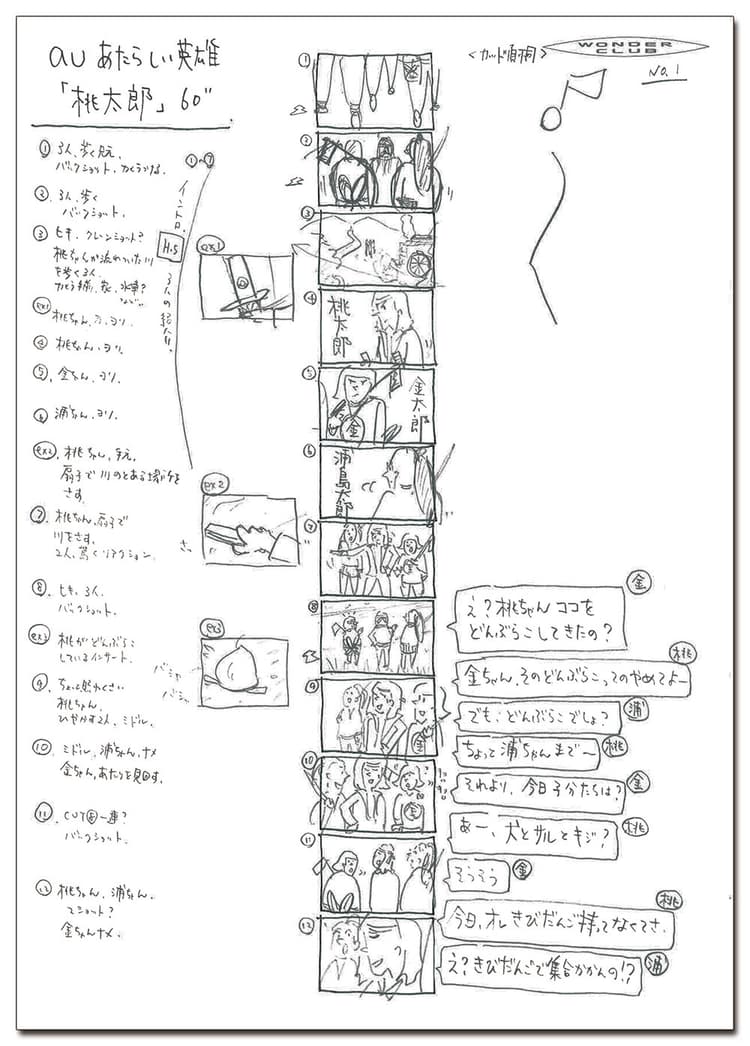 au あたらしい英雄
「桃太郎」60"
<カット項>
WONDER
CLUB
NO.1
①3人、歩く足元。
バックショット、
②.3人、歩く
バックショット。
③ヒキ、クレーンショット?
桃ちゃんが流れついた川
を歩く3人。
水車?
など…
ex1 桃ちゃん、ヨリ。
④桃ちゃん、ヨリ。
⑤.金ちゃん、ヨリ。
⑥浦ちゃん、ヨリ。
ex2.桃ちゃん、手元。
扇子で川のとある場所を
さす。
⑦桃ちゃん、扇子で
川をさす。
2人、驚くリアクション。
⑧.ヒキ、3人。
バックショット。
ex3 桃がどんぶらこ
しているインサート。
⑨.ちょっと照れくさい
桃ちゃん。
ひやかす2人、ミドル。
⑩ミドル、浦ちゃん、ナメ
金ちゃん、あたりを見回す。
⑪.CUT⑧一連?
バックショット。
⑫桃ちゃん、浦ちゃん、
2ショット?
金ちゃんナメ。
①〜⑦
イントロ。
H.S
3人の紹介!!
ex1
ex2
さっ
ex3
バシャ
バシャ
①
②
③
④
桃太郎
⑤
金太郎
金
⑥
浦島太郎
⑦
⑧
⑨
金
⑩
金
⑪
⑫
金
え?桃ちゃんココを
どんぶらこしてきたの?
桃
金ちゃん、そのどんぶらこってのやめてよー
浦
でも、どんぶらこでしょ?
桃
ちょっと浦ちゃんまで〜
金
それより、今日子分たちは?
桃
あー、犬とサルとキジ?
金
そうそう
桃
今日、オレきびだんご持ってなくてさ、
浦
え?きびだんごで集合かかんの!?